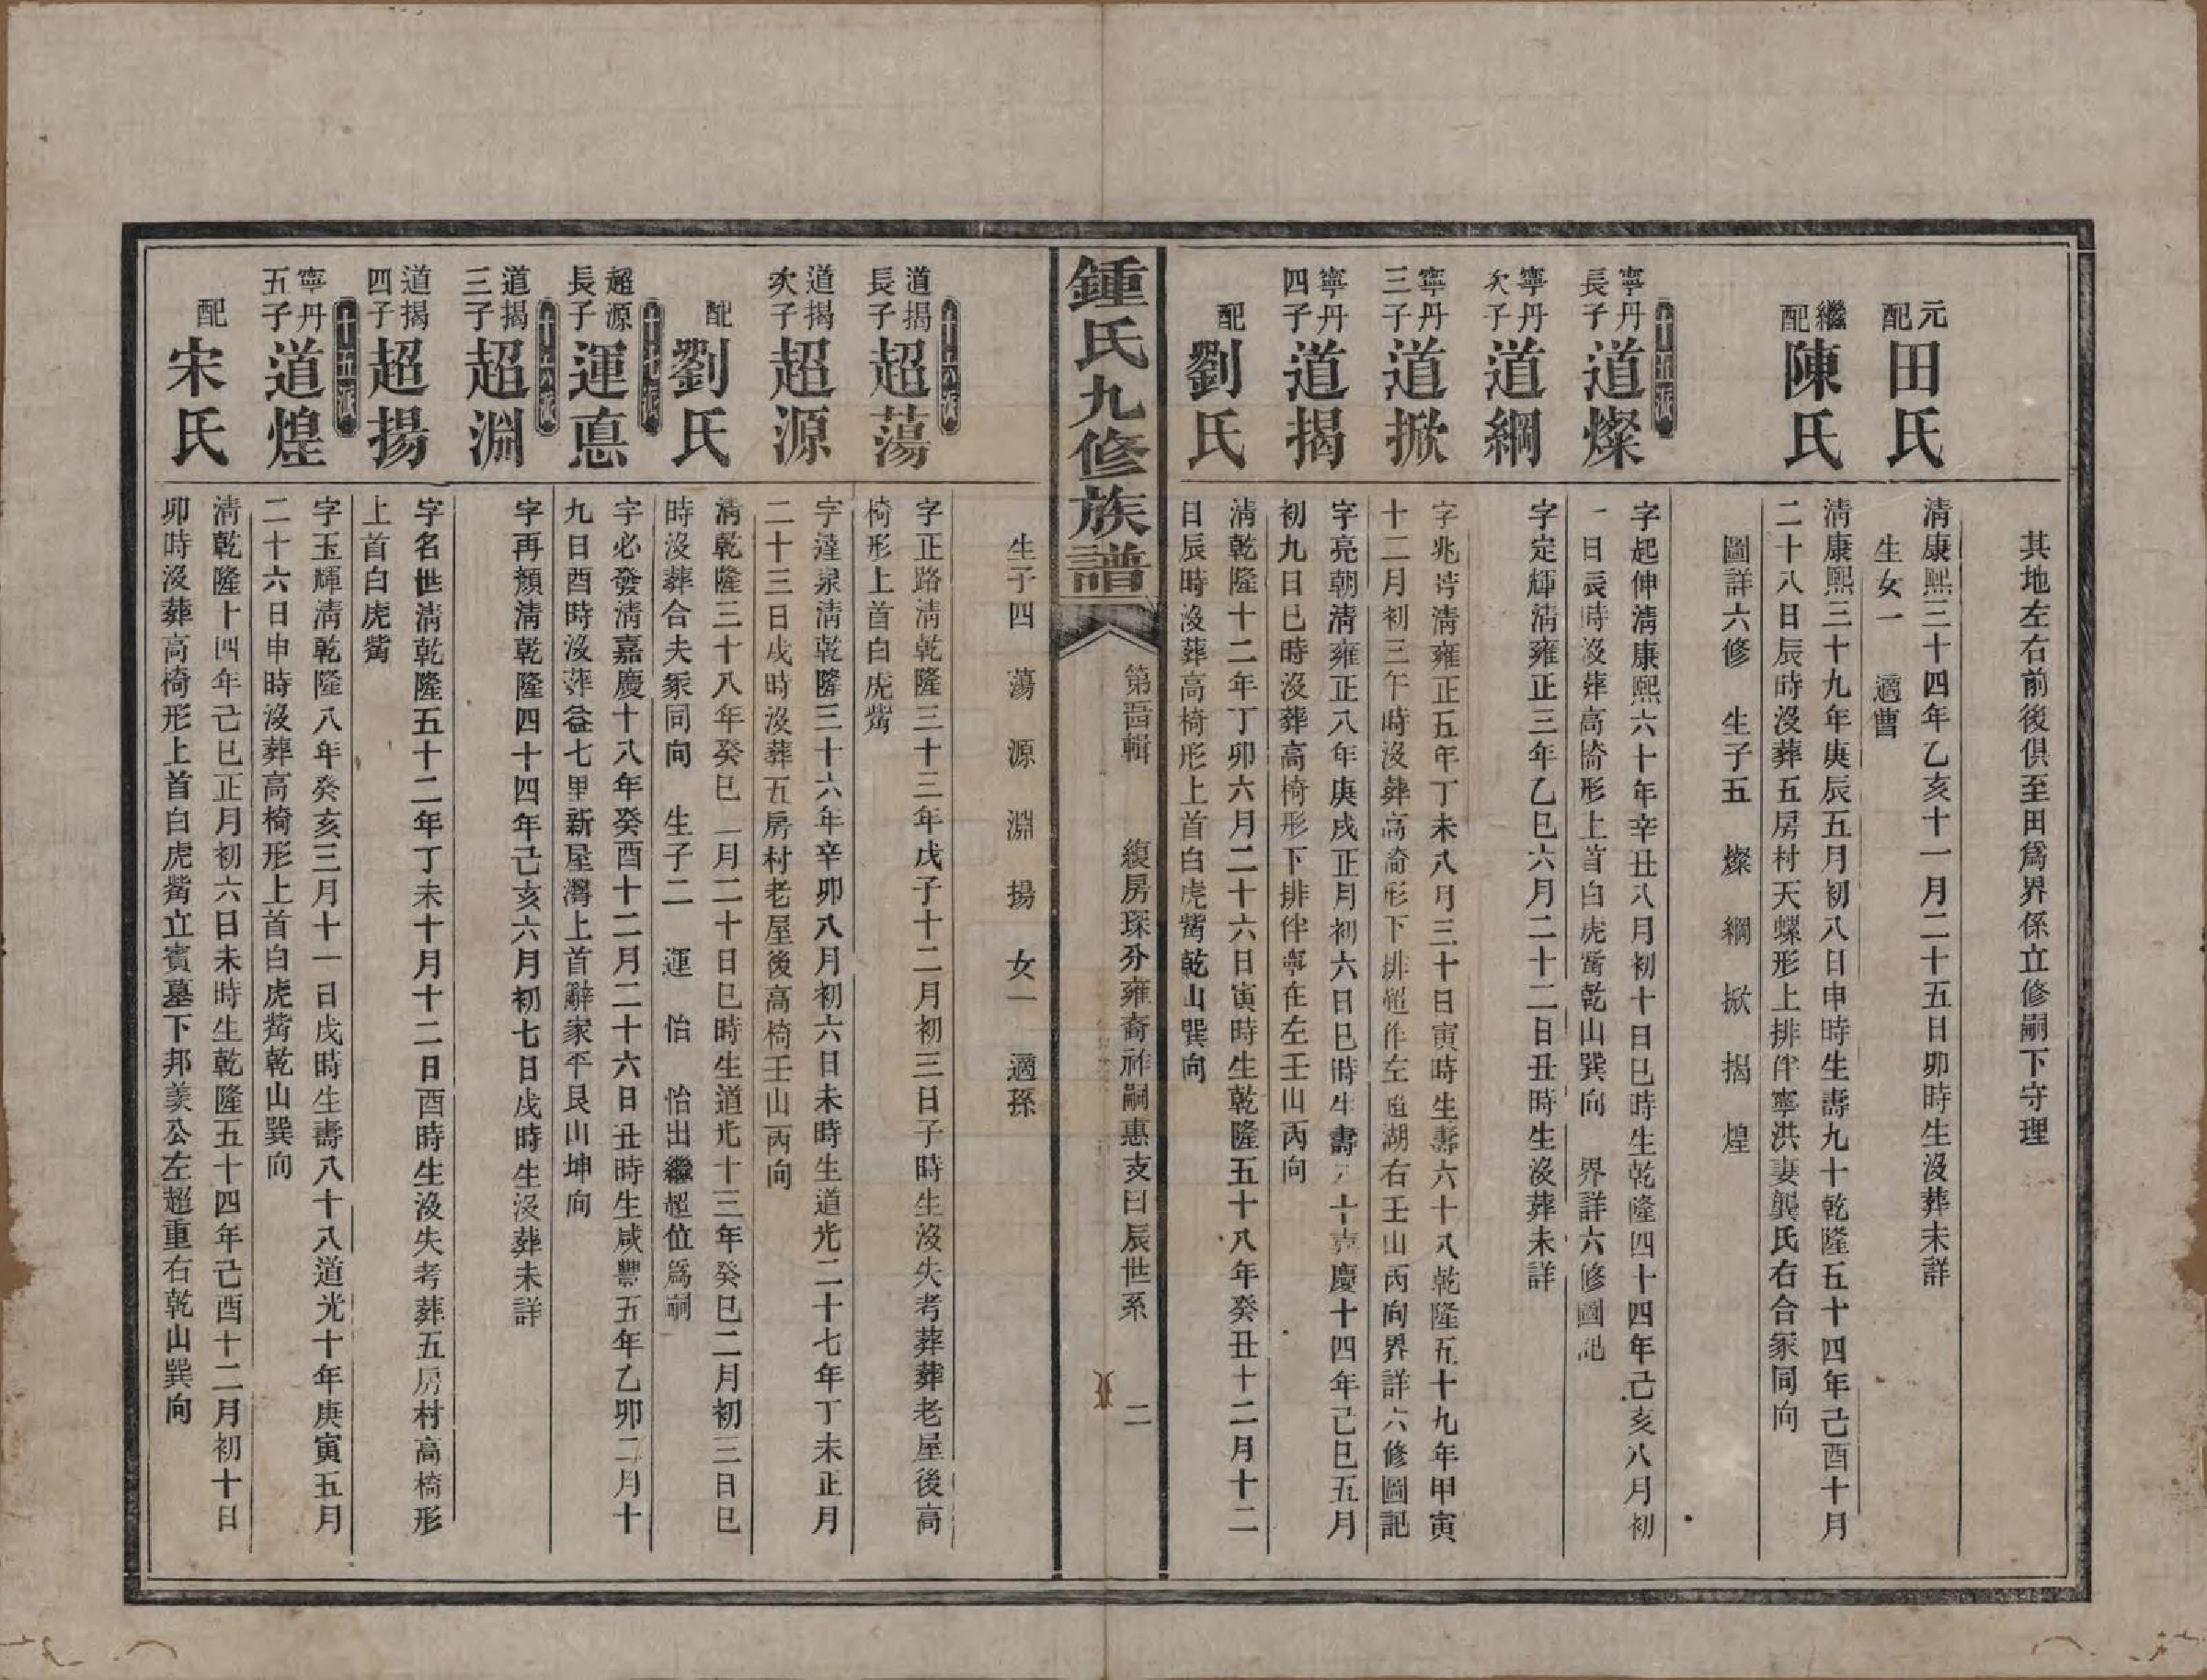 其地左右前後俱至田爲界係立修嗣下守理
元配田氏
清康熙三十四年乙亥十一月二十五日卯時生沒葬未詳
生女一　適曹
繼配陳氏
清康熙三十九年庚辰五月初八日申時生壽九十乾隆五十四年己酉十月
二十八日辰時沒葬五房村天螺形上排伴寧洪妻龔氏右合冢同向
圖詳六修　生子五　燦　綱　掀　揭　煌
寧丹長子道燦
字起伸清康熙六十年辛丑八月初十日巳時生乾隆四十四年己亥八月初
一日辰時沒葬高椅形上首白虎嘴乾山巽向　界詳六修圖記
寧丹次子道綱
字定輝清雍正三年乙巳六月二十二日丑時生沒葬未詳
寧丹三子道掀
字兆清雍正五年丁未八月三十日寅時生壽六十八乾隆五十九年甲寅
十二月初三午時沒葬高椅形下排左湖右壬山丙向界詳六修圖記
寧丹四子道揭
字亮朝清雍正八年庚戌正月初六日巳時生壽十嘉慶十四年己巳五月
初九日巳時沒葬高椅形下排伴寧在左壬山丙向
配劉氏
清乾隆十二年丁卯六月二十六日寅時生乾隆五十八年癸丑十二月十二
日辰時沒葬高椅形上首白虎嘴乾山巽向
鍾氏九修族譜
第輯　復房琛分雍裔祚嗣惠支日辰世系　二
生子四　蕩　源　淵　揚　女一　適孫
道揭長子超蕩
字正路清乾隆三十三年戊子十二月初三日子時生沒失考葬葬老屋後高
椅形上首白虎嘴
道揭次子超源
字達泉清乾隆三十六年辛卯八月初六日未時生道光二十七年丁未正月
二十三日戌時沒葬五房村老屋後高椅壬山丙向
配劉氏
清乾隆三十八年癸巳一月二十日巳時生道光十三年癸巳二月初三日巳
時沒葬合夫冢同向　生子二　運　怡　怡出繼超位爲嗣
超源長子運惪
字必發清嘉慶十八年癸酉十二月二十六日丑時生咸豐五年乙卯二月十
九日酉時沒葬益七里新屋灣上首辭家平艮山坤向
道揭三子超淵
字再顏清乾隆四十四年己亥六月初七日戌時生沒葬未詳
道揭四子超揚
字名世清乾隆五十二年丁未十月十二日酉時生沒失考葬五房村高椅形
上首白虎嘴
寧丹五子道煌
字玉輝清乾隆八年癸亥三月十一日戌時生壽八十八道光十年庚寅五月
二十六日申時沒葬高椅形上首白虎嘴乾山巽向
配宋氏
清乾隆十四年己巳正月初六日未時生乾隆五十四年己酉十二月初十日
卯時沒葬高椅形上首白虎嘴立賓墓下邦美公左超重右乾山巽向